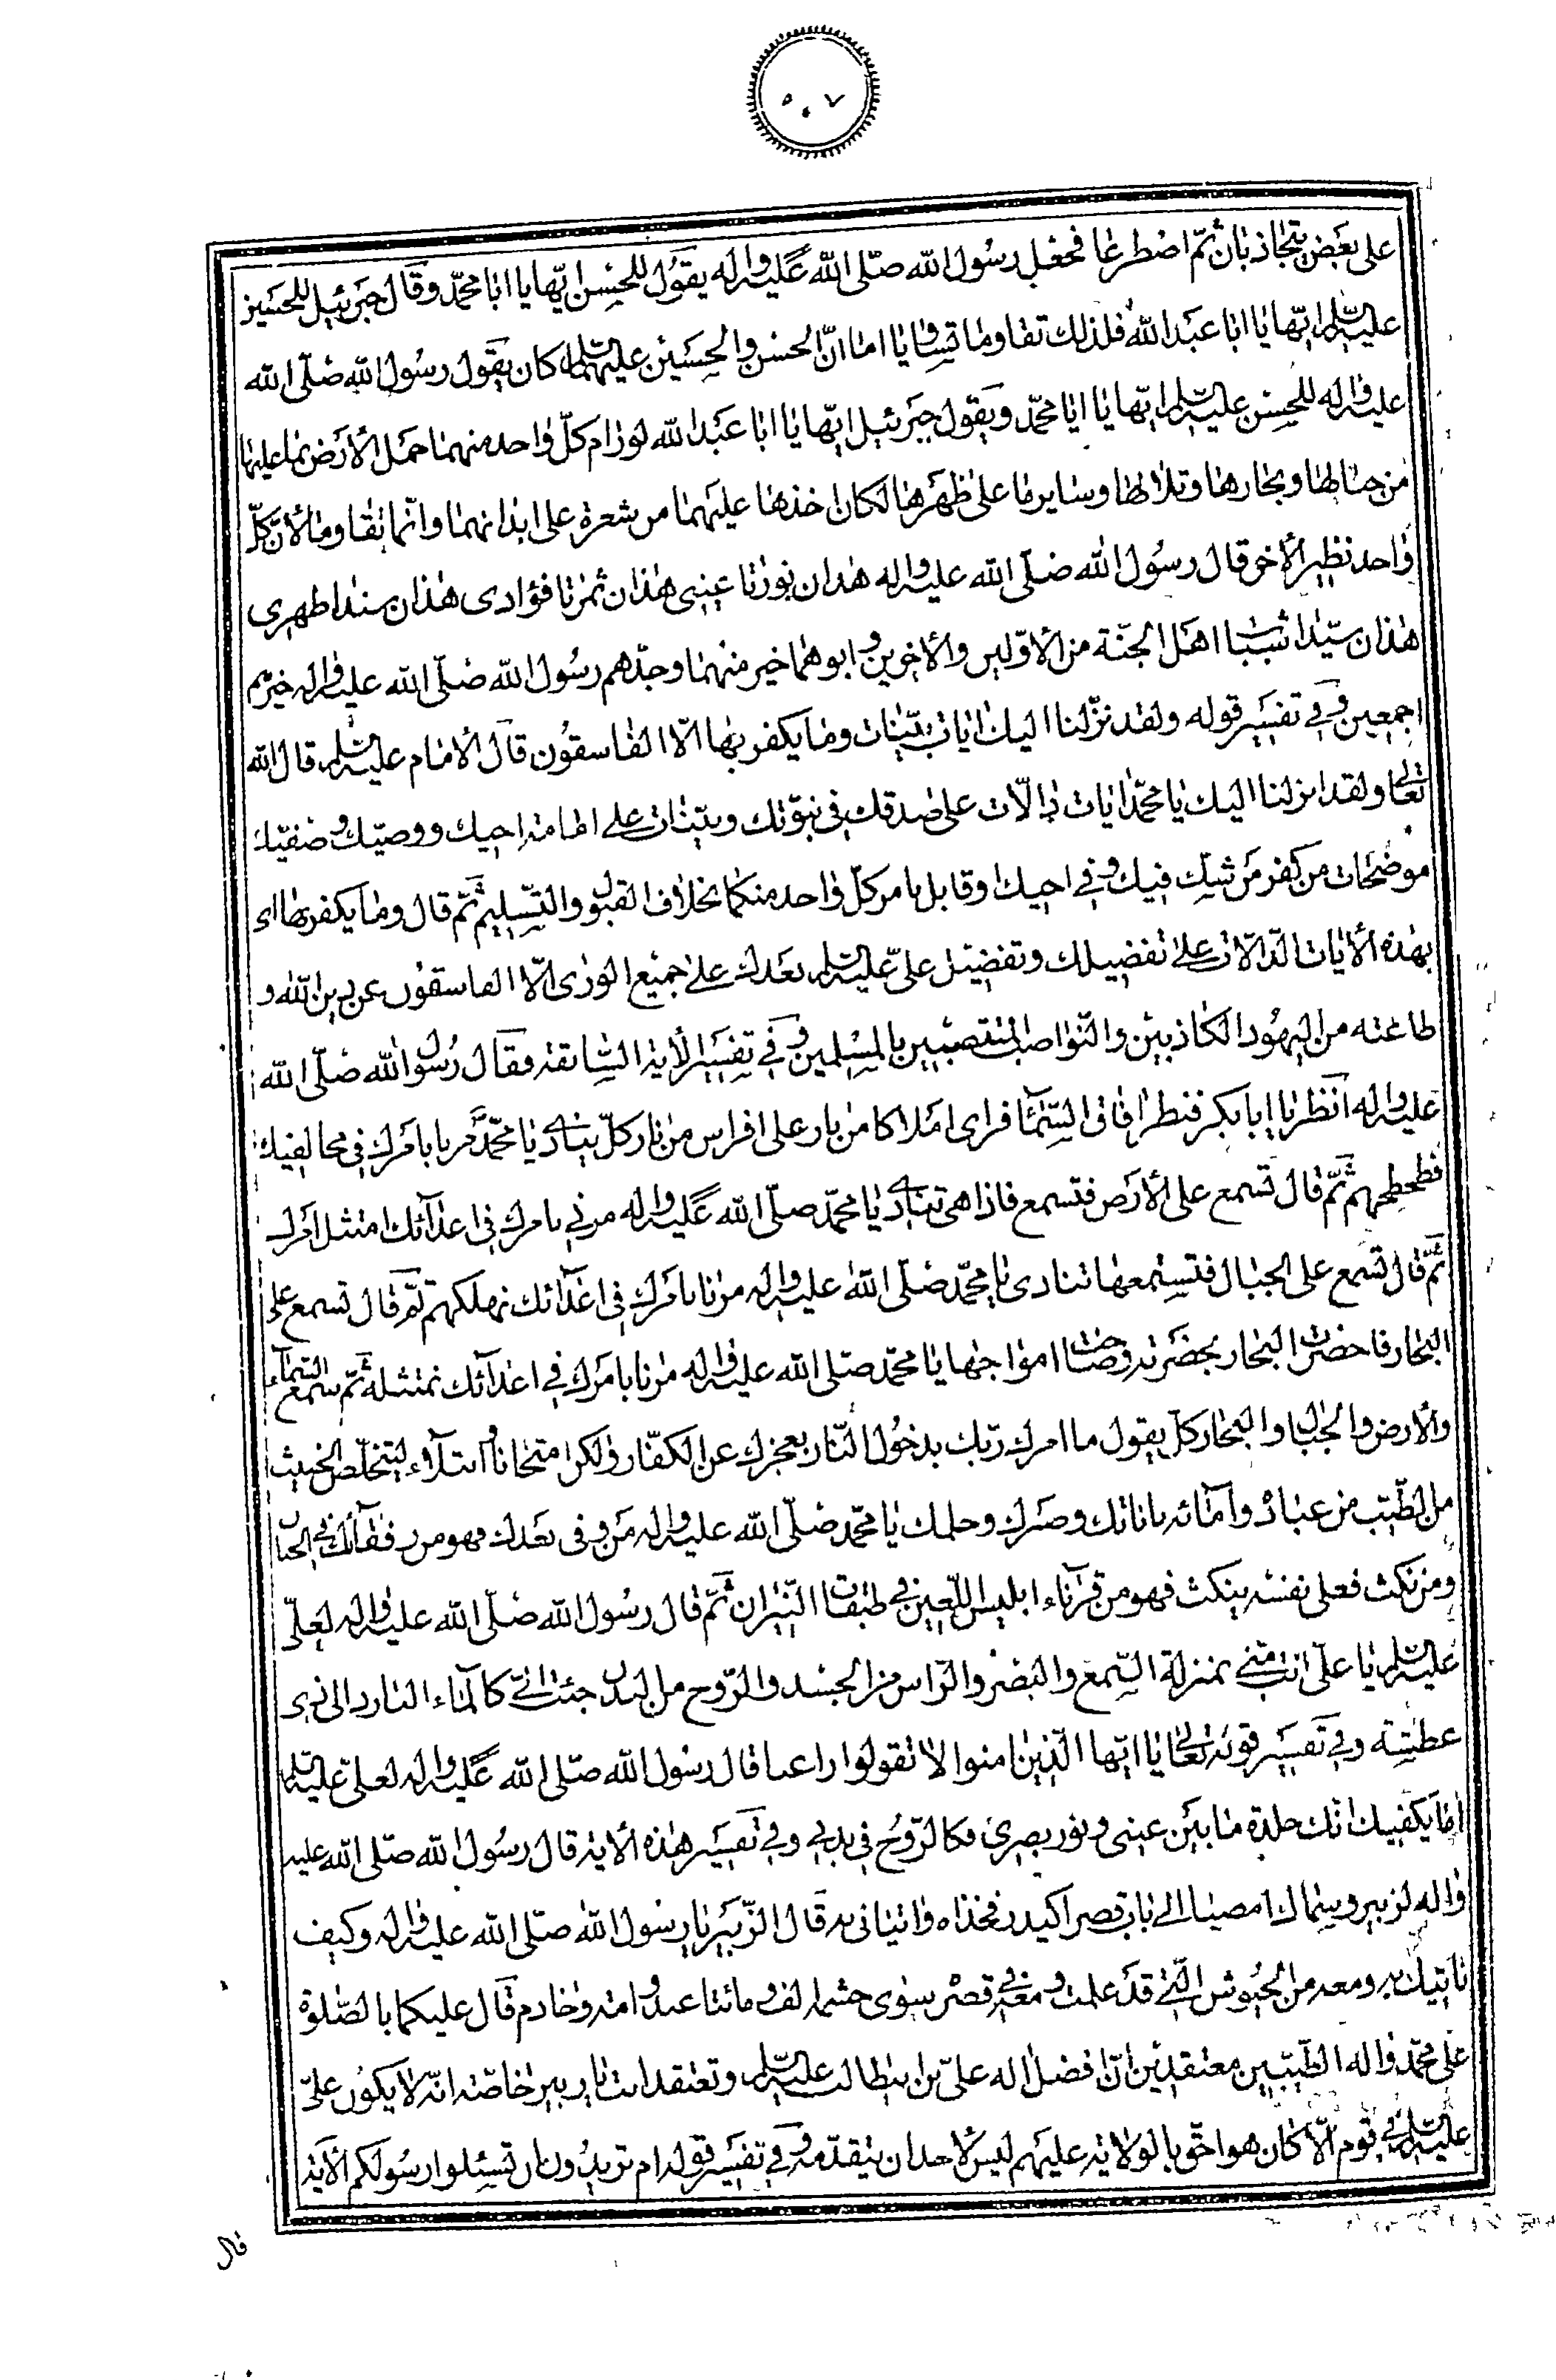 ٥٠٧
على بعض يتجاذبان ثمّ اصطرعا فجعل رسُول الله صلّى الله عَليه واله يقوُل للحسن ايّها يا ابا محمّد وقال جبرئيل للحسين
عليه السّلم ايّها يا ابا عبد الله فلذلك تقاوما وتساويا اما انّ الحسن والحسين عليهما السّلم كان يقول رسُول الله صلّى الله
عليه واله للحسن عليه السّلم ايّها يا ابا محمّد ويقول جبرئيل ايّها يا ابا عبد الله لو رام كلّ واحد منهما حمل الأرض بما عليها
من جبالها وبحارها وتلالها وساير ما على ظهرها لكان اخف عليهما من شعرة على ابدانهما وانّما تقاوما لأنّ كلّ
واحد نظير الأخر قال رسُول الله صلّى الله عليه واله هذان نورتا عينى هذان ثمرتا فؤادى هذان سندا ظهرى
هذان سيّدا شباب اهل الجنّة من الأوّلين والأخرين وابوهما خير منهما وجدّهم رسُول الله صلّى الله عليه واله خيرهم
اجمعين وفي تفسير قوله ولقد نزّلنا اليك ايات بيّنات وما يكفر بها الّا الفاسقوُن قال الأمام عليه السّلم قال الله
تعالى ولقد انزلنا اليك يا محمّد ايات دالّات على صدقك فى نبوّتك وبيّنات على امامة اخيك ووصيّك وصفيّك
موضحات من كفر من شكّ فيك وفي اخيك وقابل بامر كلّ واحد منكما بخلاف القبول والتّسليم ثمّ قال وما يكفر بها اى
بهذه الأيات الدّالّات على تفضيلك وتفضيل علىّ عليه السّلم بعدك على جميع الورى الّا الفاسقوُن عن دين الله و
طاعته من اليهُود الكاذبين والنّواصب المتعصّبين بالمسلمين وفي تفسير الأية السّابقة فقال رسُول الله صلّى الله
عليه واله انظر يا ابا بكر فنظر افاق السّمآء فراى املاكا من نار على افراس من نار كلّ ينادى يا محمّد مرنا بامرك فى مخالفيك
نطحطحهم ثمّ قال تسمع على الأرض فتسمع فاذا هى تنادى يا محمّد صلّى الله عَليه واله مرنى بامرك فى اعدآئك امتثل امرك
ثمّ قال تسمع على الجبال فتسمعها تنادى يا محمّد صلّى الله عليه واله مرنا بامرك فى اعدآئك نهلكهم ثمّ قال تسمع على
البحار فاحضرت البحار بحضرته وصاحت امواجها يا محمّد صلّى الله عليه واله مرنا بامرك فى اعدآئك نمتثله ثمّ سمع السّمآء
والأرض والجبال والبحار كلّ يقول ما امرك ربّك بدخول النّار بعجزك عن الكفّار ولكن امتحانا وابتلآء ليتخلّص الخبيث
من الطّيّب من عباده وامآئه باناتك وصبرك وحلمك يا محمّد صلّى الله عليه واله من وفى بعدك فهو من رفقآئك فى الجنان
ومن نكث فعلى نفسه ينكث فهو من قرنآء ابليس اللّعين فى طبقات النّيران ثمّ قال رسُول الله صلّى الله عليه واله لعلىّ
عليه السّلم يا علىّ انت منّى بمنزلة السّمع والبصر والرّاس من الجسد والرّوح من البدن حببت الىّ كالمآء البارد الى ذى
عطشه وفي تفسير قوله تعالى يا ايّها الّذين امنوا لا تقولوا راعنا قال رسُول الله صلّى الله عَليه واله لعلىّ عليه السّلم
اما يكفيك انّك جلدة ما بين عينى ونور بصرى وكالرّوُح فى بدنى وفي تفسير هذه الأية قال رسُول الله صلّى الله عليه
واله لزبير وسماك امضيا الى باب قصر اكيدر فخذاه واتيانى به قال الزّبير يا رسُول الله صلّى الله عليه واله وكيف
ناتيك به ومعه من الجيُوش الّتى قد علمت ومعه فى قصره سوى حشمه الف ومائتا عبد وامة وخادم قال عليكما بالصّلوة
على محمّد واله الطّيّبين معتقدين انّ افضل اله علىّ بن ابيطالب عليه السّلم وتعتقد انت يا زبير خاصّة انّه لا يكوُن علىّ
عليه السّلم فى قوم الّا كان هو احقّ بالولاية عليهم ليس لأحد ان يتقدّمه وفي تفسير قوله ام تريدُون ان تسئلوا رسُولكم الأية
قال